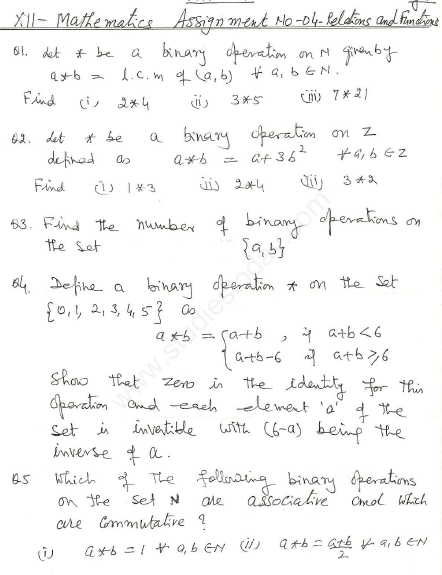 XII- Mathematics Assignment No-04-Relations and Functions
Q1. Let * be a binary operation on N given by
a*b = l.c.m of (a,b) ∀ a, b ∈ N.
Find (i) 2*4 (ii) 3*5 (iii) 7*21
Q2. Let * be a binary operation on Z
defined as a*b = a+3b² ∀ a, b ∈ Z
Find (i) 1*3 (ii) 2*4 (iii) 3*2
Q3. Find the number of binary operations on
the set {a,b}
Q4. Define a binary operation * on the set
{0,1,2,3,4,5} as
a*b = { a+b , if a+b<6
{ a+b-6 if a+b≥6
Show that zero is the identity for this
operation and each element 'a' of the
set is invertible with (6-a) being the
inverse of a.
Q5 Which of the following binary operations
on the set N are associative and which
are commutative ?
(i) a*b = 1 ∀ a, b ∈ N (ii) a*b = (a+b)/2 ∀ a, b ∈ N